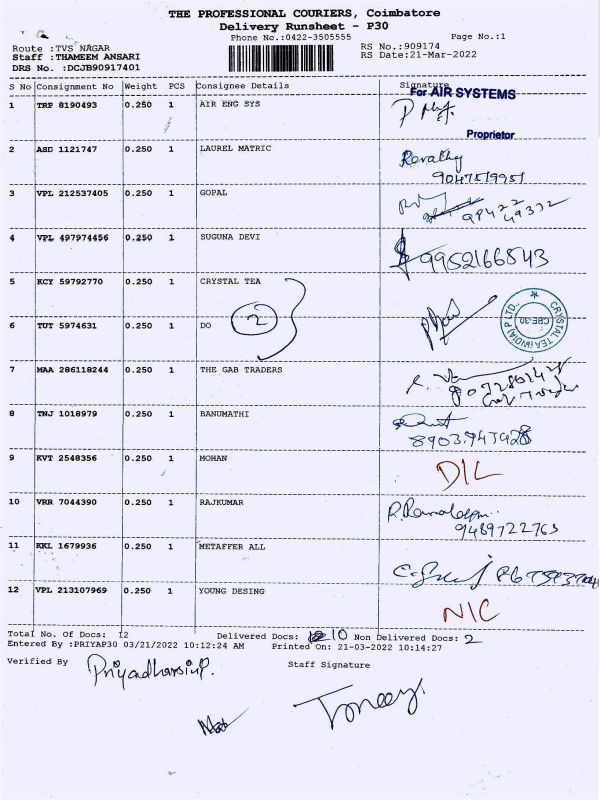 THE PROFESSIONAL COURIERS, Coimbatore
Delivery Runsheet - P30
Phone No.:0422-3505555 Page No.:1
Route :TVS NAGAR RS No.:909174
Staff :THAMEEM ANSARI RS Date:21-Mar-2022
DRS No. :DCJB90917401
S No Consignment No Weight PCS Consignee Details Signature
For AIR SYSTEMS
1 TRP 8190493 0.250 1 AIR ENG SYS
Proprietor
2 ASD 1121747 0.250 1 LAUREL MATRIC Revathy
9047519951
3 VPL 212537405 0.250 1 GOPAL
98422 49332
4 VPL 497974456 0.250 1 SUGUNA DEVI 9952166543
5 KCY 59792770 0.250 1 CRYSTAL TEA
CRYSTAL TEA (INDIA) P LTD. CBE-30
6 TUT 5974631 0.250 1 DO 2
7 MAA 286118244 0.250 1 THE GAB TRADERS
8 TNJ 1018979 0.250 1 BANUMATHI
8903943928
9 KVT 2548356 0.250 1 MOHAN D/L
10 VRR 7044390 0.250 1 RAJKUMAR
9489722763
11 KKL 1679936 0.250 1 METAFFER ALL
12 VPL 213107969 0.250 1 YOUNG DESING N/C
Total No. Of Docs: 12 Delivered Docs: 10 Non Delivered Docs: 2
Entered By :PRIYAP30 03/21/2022 10:12:24 AM Printed On: 21-03-2022 10:14:27
Verified By Priyadharsini.P. Staff Signature